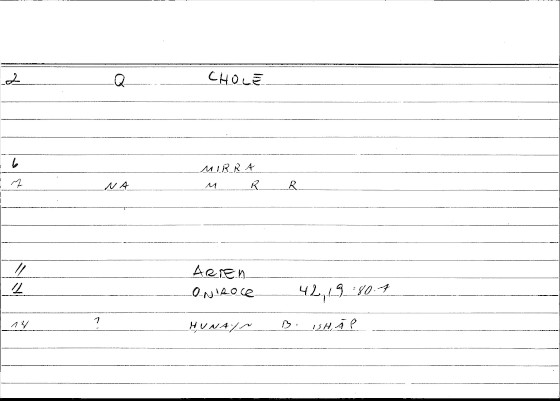 2 Q CHOLĒ
6 MIRRA
7 NA M R R
11 ARTEM
12 ONIROCR 42,19
14 ? HUNAYN B. ISHĀQ